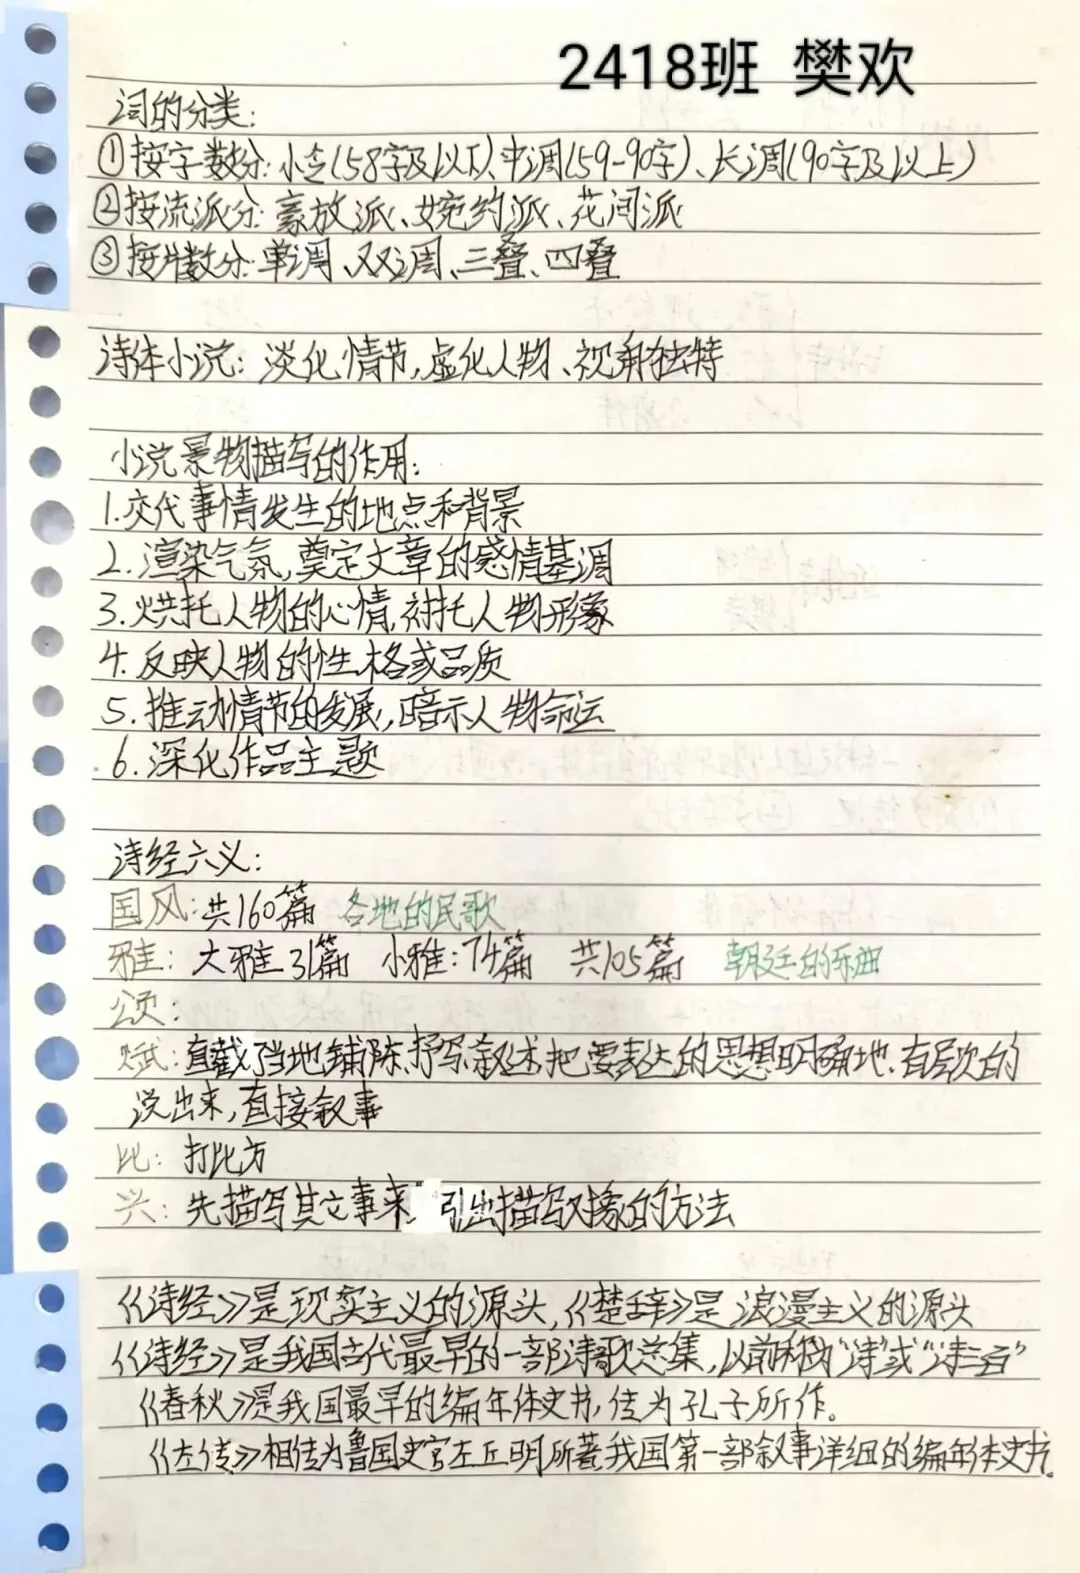 2418班 樊欢
词的分类:
①按字数分:小令(58字及以下)、中调(59-90字)、长调(90字及以上)
②按流派分:豪放派、婉约派、花间派
③按片数分:单调、双调、三叠、四叠
诗体小说:淡化情节,虚化人物、视角独特
小说景物描写的作用:
1.交代事情发生的地点和背景
2.渲染气氛,奠定文章的感情基调
3.烘托人物的心情,衬托人物形象
4.反映人物的性格或品质
5.推动情节的发展,暗示人物命运
6.深化作品主题
诗经六义:
国风:共160篇 各地的民歌
雅:大雅31篇 小雅:74篇 共105篇 朝廷的乐曲
颂:
赋:直截了当地铺陈、抒写、叙述,把要表达的思想明确地、有层次的
说出来,直接叙事
比:打比方
兴:先描写其它事来引出描写对象的方法
《诗经》是现实主义的源头,《楚辞》是浪漫主义的源头
《诗经》是我国古代最早的一部诗歌总集,以前称为“诗”或“诗三百”
《春秋》是我国最早的编年体史书,传为孔子所作。
《左传》相传为鲁国史官左丘明所著我国第一部叙事详细的编年体史书。